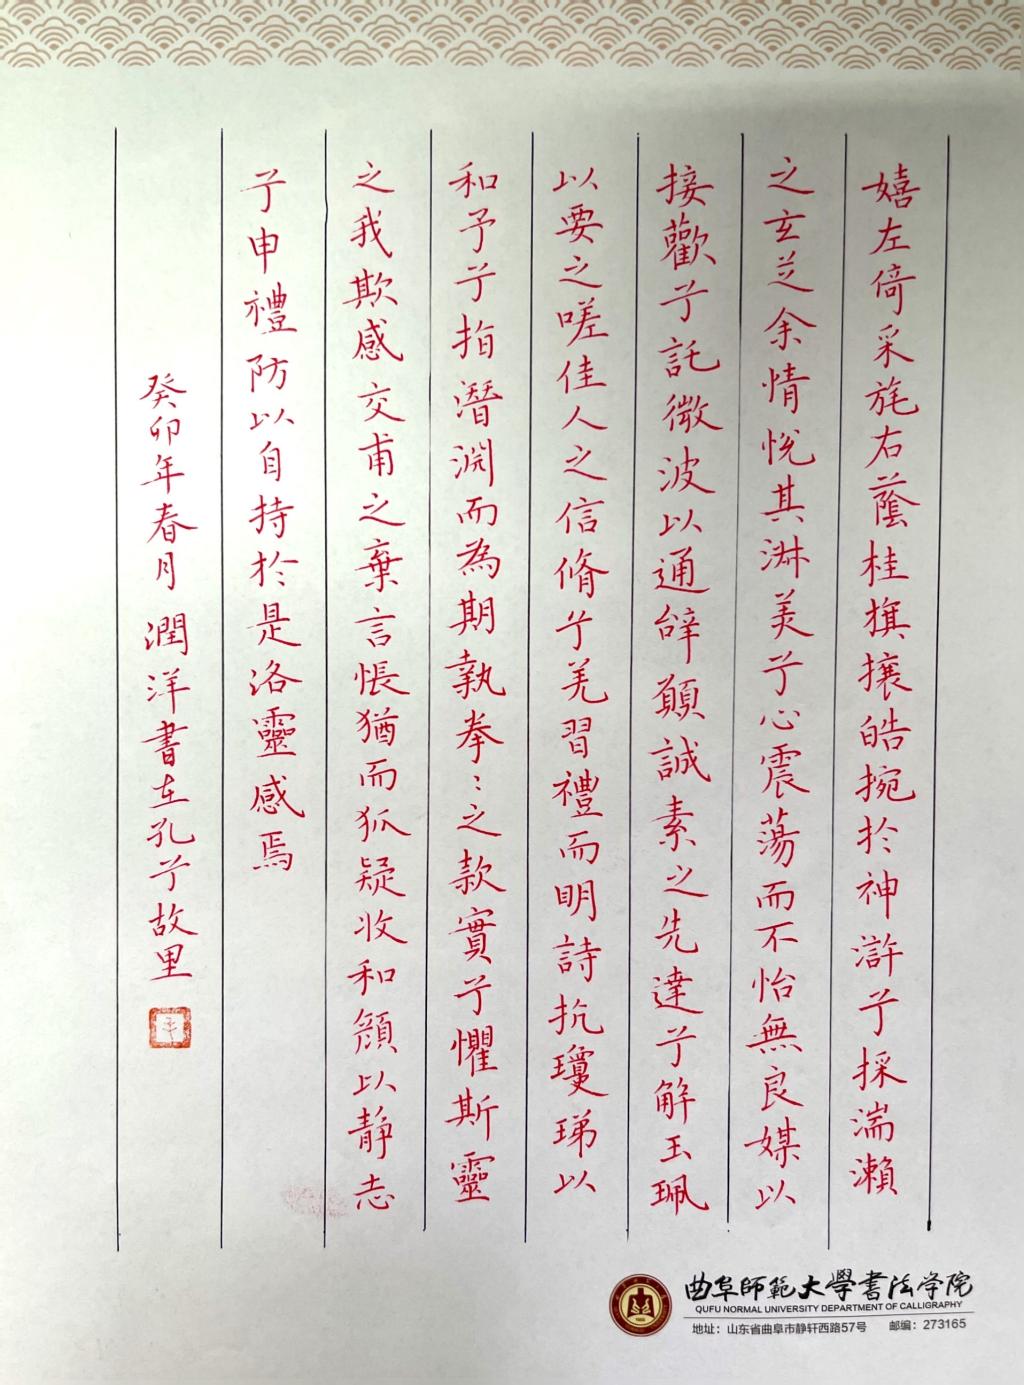 嬉左倚采旄右蔭桂旗攘皓捥於神滸兮採湍瀨
之玄芝余情悅其淋美兮心震蕩而不怡無良媒以
接歡兮託微波以通辝願誠素之先達兮解玉珮
以要之嗟佳人之信脩兮羌習禮而明詩抗瓊珶以
和予兮指潛淵而為期執拳〻之款實兮懼斯靈
之我欺感交甫之棄言悵猶而狐疑收和顏以静志
兮申禮防以自持於是洛靈感焉
癸卯年春月潤洋書在孔子故里
曲阜師範大學書法学院
QUFU NORMAL UNIVERSITY DEPARTMENT OF CALLIGRAPHY
地址：山东省曲阜市静轩西路57号 邮编：273165